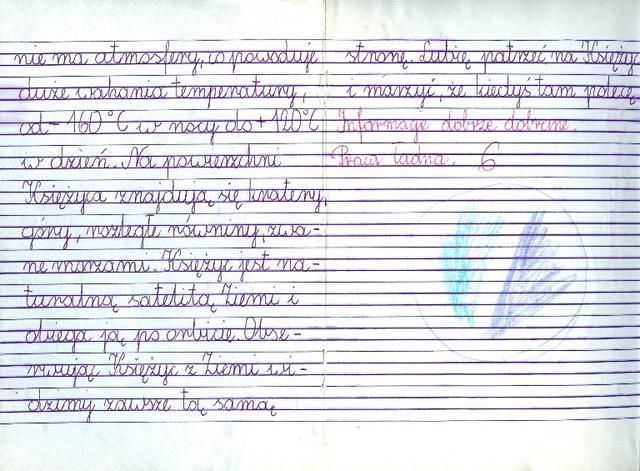 nie ma atmosfery, co powoduje
duże wahania temperatury,
od -160°C w nocy do +120°C
w dzień. Na powierzchni
Księżyca znajdują się kratery,
góry, rozległe równiny, zwa-
ne morzami. Księżyc jest na-
turalną satelitą Ziemi i
obiega ją po orbicie. Obse-
rwując Księżyc z Ziemi wi-
dzimy zawsze tą samą
stronę. Lubię patrzeć na Księżyc
i marzyć, że kiedyś tam polecę
Informacje dobrze dobrane.
Praca ładna. 6